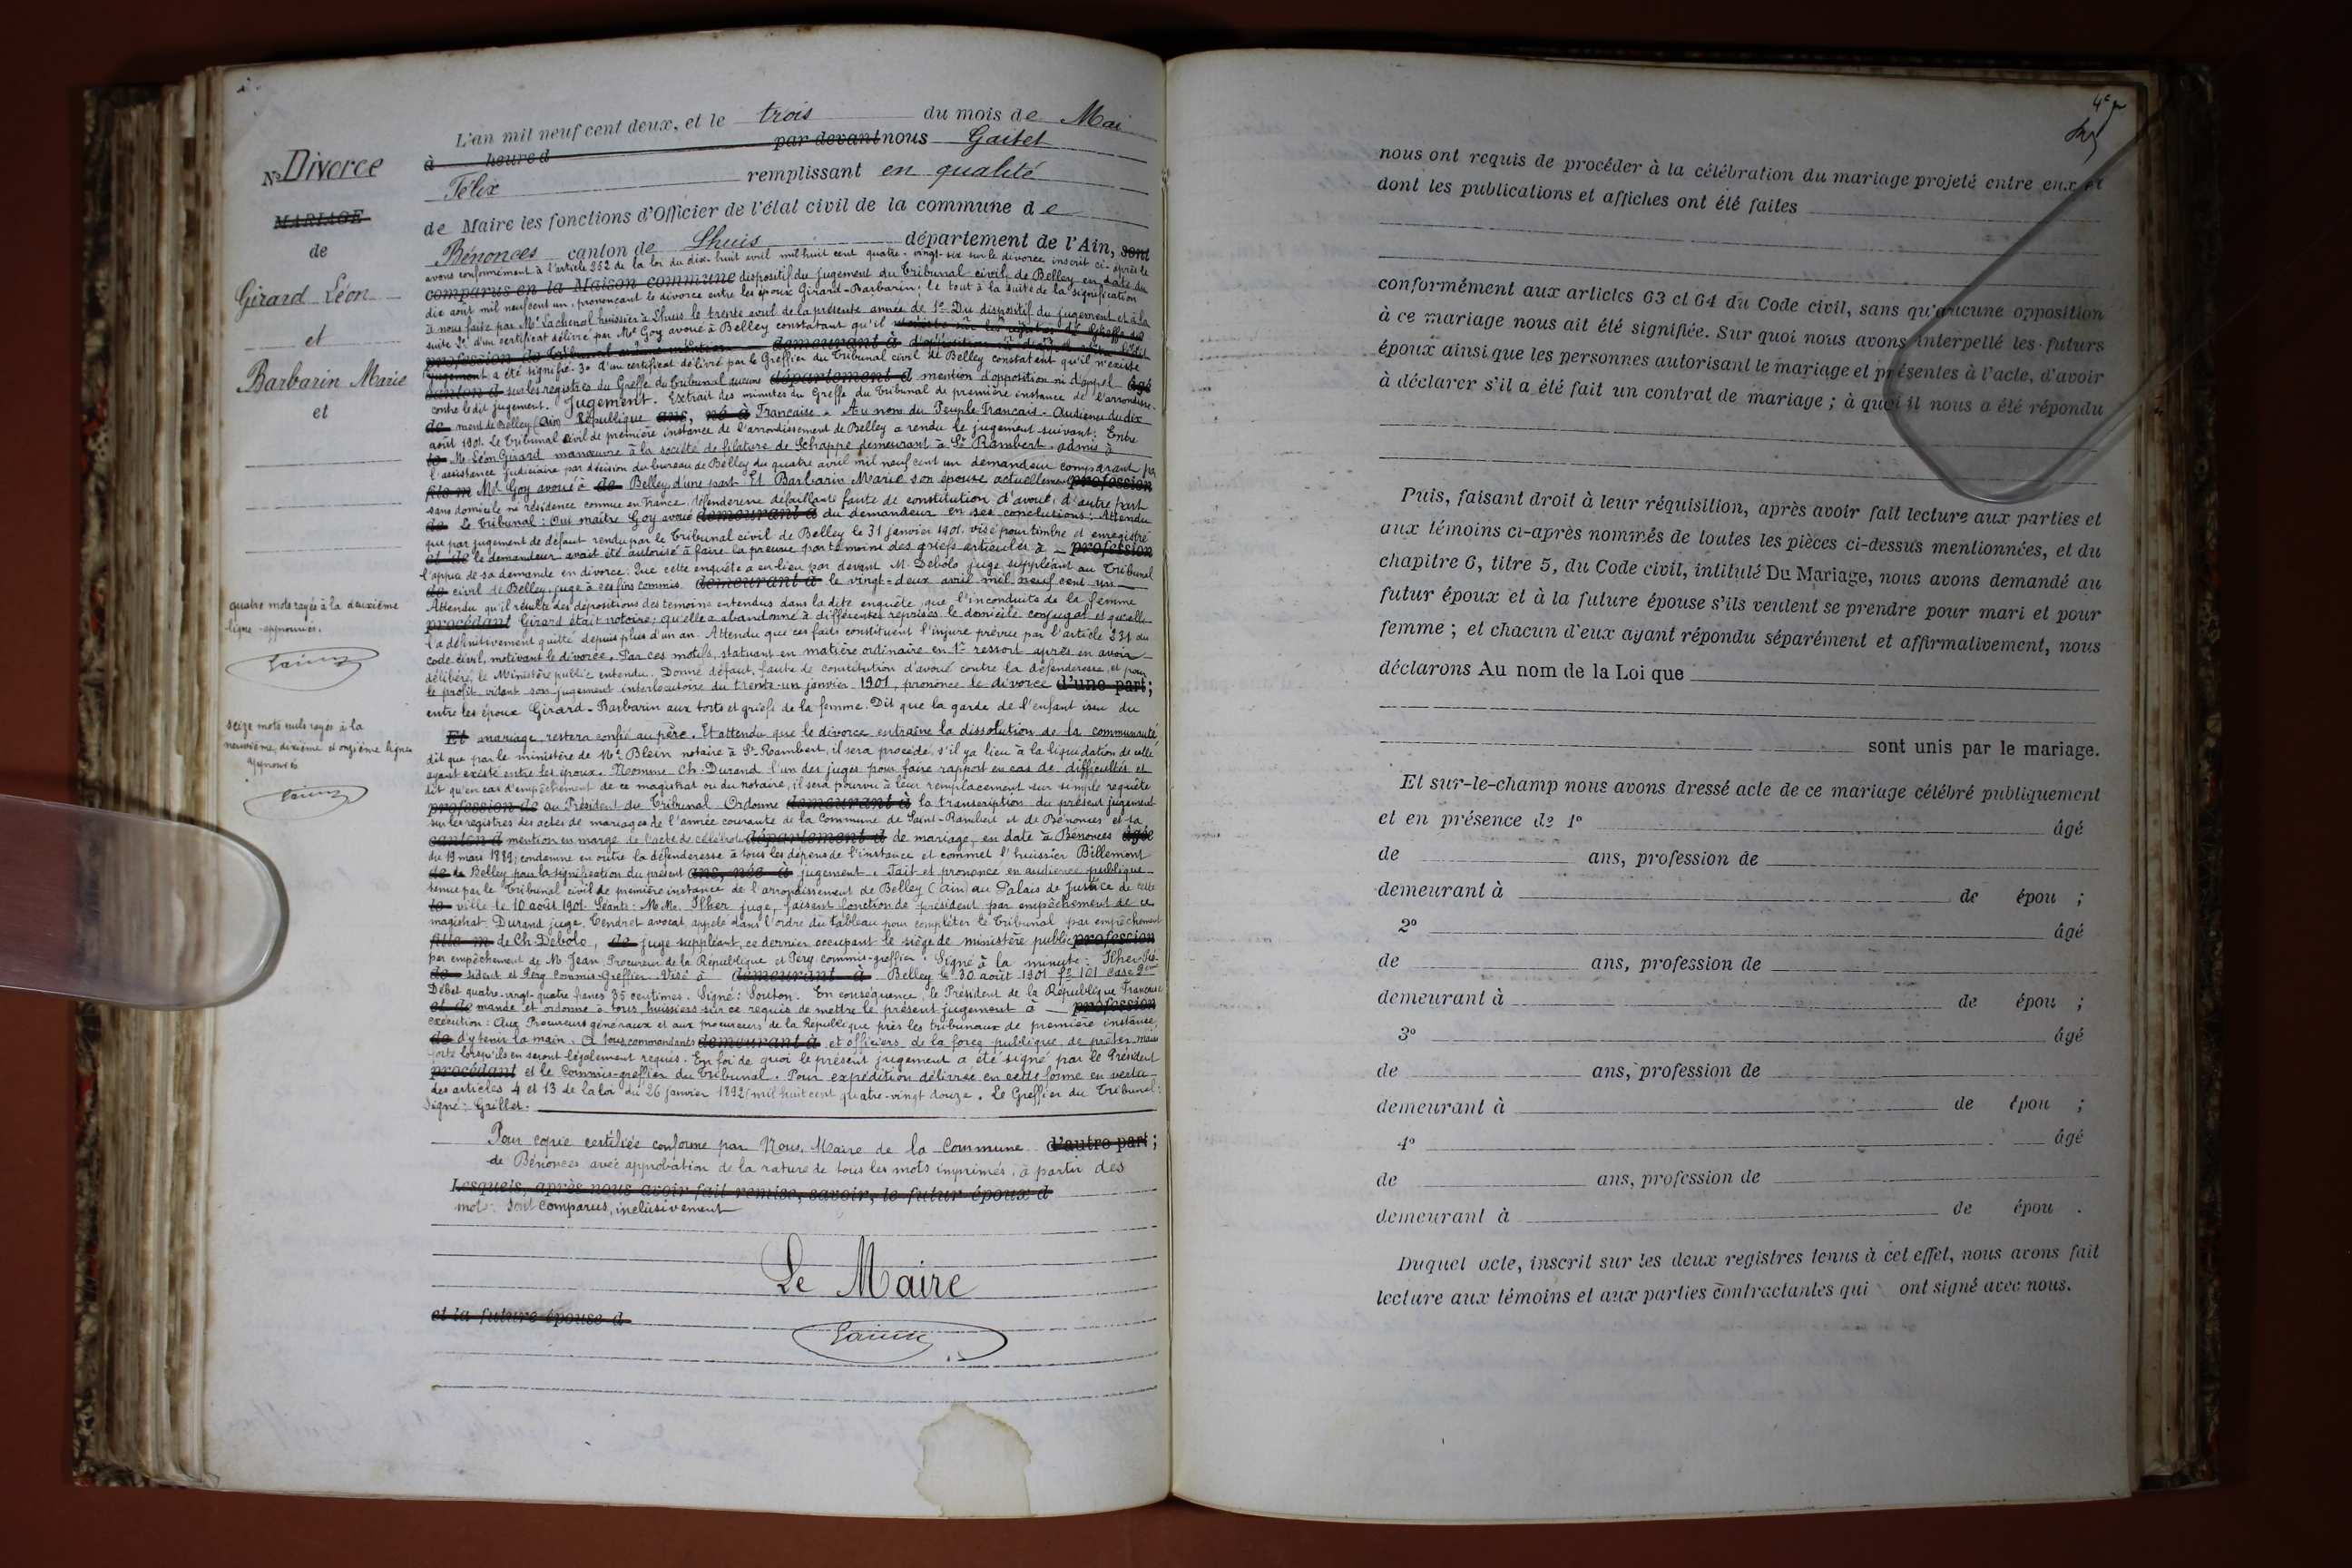 N° Divorce
MARIAGE
de
Girard Léon
et
Barbarin Marie
et
quatre mots rayés à la deuxième
ligne approuvés.
seize mots nuls rayés à la
neuvième, dixième et onzième lignes
approuvés
L'an mil neuf cent deux, et le trois du mois de Mai
à heure d par devant nous Gaitet
Félix remplissant en qualité
de Maire les fonctions d'Officier de l'état civil de la commune de
Bénonces canton de Lhuis département de l'Ain, sont
avons conformément à l'article 252 de la loi du dix-huit avril mil huit cent quatre-vingt-six sur le divorce inscrit ci-après le
comparus en la Maison commune dispositif du jugement du Tribunal civil de Belley en date du
dix août mil neuf cent un, prononçant le divorce entre les époux Girard-Barbarin; le tout à la suite de la signification
à nous faite par Me Lachenal huissier à Lhuis le trente avril de la présente année de 1° Du dispositif du jugement et à la
suite 2° d'un certificat délivré par Me Goy avoué à Belley constatant qu'il
profession de demeurant à
jugement a été signifié. 3° d'un certificat délivré par le Greffier du Tribunal civil de Belley constatant qu'il n'existe
canton d sur les registres du Greffe du tribunal aucune département d mention d'opposition ni d'appel âgé
contre le dit jugement. Jugement. Extrait des minutes du Greffe du Tribunal de première instance de l'arrondisse-
de ment de Belley (Ain) République ans, né à Française. Au nom du Peuple Français. Audience du dix
août 1901. Le Tribunal civil de première instance de l'arrondissement de Belley a rendu le jugement suivant: Entre
le Mr Léon Girard manœuvre à la société de filature de Schappe demeurant à St Rambert admis à
l'assistance judiciaire par décision du bureau de Belley du quatre avril mil neuf cent un demandeur comparant par
fils m Me Goy avoué à de Belley d'une part Et Barbarin Marie son épouse actuellement profession
sans domicile ni résidence connue en France, défenderesse défaillante faute de constitution d'avoué, d'autre part
de Le Tribunal: Oui maître Goy avoué demeurant à du demandeur en ses conclutions: Attendu
que par jugement de défaut rendu par le Tribunal civil de Belley le 31 janvier 1901, visé pour timbre et enregistré
et de le demandeur avait été autorisé à faire la preuve par témoins des griefs articulés à profession
l'appui de sa demande en divorce. Que cette enquête a eu lieu par devant M. Debolo juge suppléant au Tribunal
de civil de Belley, juge à ces fins commis demeurant à le vingt-deux avril mil neuf cent un
Attendu qu'il résulte des dépositions des témoins entendus dans la dite enquête, que l'inconduite de la femme
procédant Girard était notoire; qu'elle a abandonné à différentes reprises le domicile conjugal et qu'elle
l'a définitivement quitté depuis plus d'un an. Attendu que ces faits constituent l'injure prévue par l'article 231 du
code civil, motivant le divorce. Par ces motifs, statuant en matière ordinaire en 1er ressort après en avoir
délibéré, le Ministère public entendu. Donne défaut, faute de constitution d'avoué contre la défenderesse, et pour
le profit vidant son jugement interlocutoire du trente-un janvier 1901, prononce le divorce d'une part;
entre les époux Girard-Barbarin aux torts et griefs de la femme. Dit que la garde de l'enfant issu du
Et mariage restera confié au père. Et attendu que le divorce entraîne la dissolution de la communauté,
dit que par le ministère de Me Blein notaire à St-Rambert, il sera procédé, s'il y a lieu à la liquidation de celle
ayant existé entre les époux. Nomme Ch. Durand l'un des juges pour faire rapport en cas de difficultés et
dit qu'en cas d'empêchement de ce magistrat ou du notaire, il sera pourvu à leur remplacement sur simple requête
profession de au Président du Tribunal Ordonne demeurant à la transcription du présent jugement
sur les registres des actes de mariages de l'année courante de la Commune de Saint-Rambert et de Bénonces et sa
canton d mention en marge de l'acte de célébration département d de mariage, en date à Bénonces âgée
du 19 mars 1889; condamne en outre la défenderesse à tous les dépens de l'instance et commet l'huissier Billemont
de de Belley pour la signification du présent ans, née à jugement. Fait et prononcé en audience publique
tenue par le Tribunal civil de première instance de l'arrondissement de Belley (Ain) au Palais de Justice de cette
le ville le 10 août 1901. Séants: M.M. Ilher juge, faisant fonction de président par empêchement de ce
magistrat Durand juge, Tendret avocat, appelé dans l'ordre du tableau pour compléter le Tribunal par empêchement
fille m de Ch. Debolo, de juge suppléant, ce dernier occupant le siège de ministère public profession
par empêchement de M. Jean, Procureur de la République et Péry commis-greffier. Signé à la minute: Ilher Pré-
de sident et Péry commis-Greffier. Visé à demeurant à Belley le 30 août 1901 f° 101 case 9ème
Débet quatre-vingt-quatre francs 35 centimes. Signé: Souton. En conséquence, le Président de la République Française
et de mande et ordonne à tous huissiers sur ce requis de mettre le présent jugement à profession
exécution: Aux Procureurs généraux et aux procureurs de la République près les tribunaux de première instance,
de d'y tenir la main. A tous commandants demeurant à et officiers de la force publique de prêter main
forte lorsqu'ils en seront légalement requis. En foi de quoi le présent jugement a été signé par le Président
procédant et le Commis-greffier du Tribunal. Pour expédition délivrée en cette forme en vertu
des articles 4 et 13 de la loi du 26 janvier 1892 / mil huit cent quatre-vingt douze. Le Greffier du Tribunal:
Signé: Grillet.
Pour copie certifiée conforme par Nous, Maire de la Commune d'autre part;
de Bénonces avec approbation de la rature de tous les mots imprimés, à partir des
Lesquels, après nous avoir fait remise, savoir, le futur époux d
mots: Sont comparus, inclusivement
Le Maire
et la future épouse d
nous ont requis de procéder à la célébration du mariage projeté entre eux et
dont les publications et affiches ont été faites
conformément aux articles 63 et 64 du Code civil, sans qu'aucune opposition
à ce mariage nous ait été signifiée. Sur quoi nous avons interpellé les futurs
époux ainsi que les personnes autorisant le mariage et présentes à l'acte, d'avoir
à déclarer s'il a été fait un contrat de mariage; à quoi il nous a été répondu
Puis, faisant droit à leur réquisition, après avoir fait lecture aux parties et
aux témoins ci-après nommés de toutes les pièces ci-dessus mentionnées, et du
chapitre 6, titre 5, du Code civil, intitulé Du Mariage, nous avons demandé au
futur époux et à la future épouse s'ils veulent se prendre pour mari et pour
femme; et chacun d'eux ayant répondu séparément et affirmativement, nous
déclarons Au nom de la Loi que
sont unis par le mariage.
Et sur-le-champ nous avons dressé acte de ce mariage célébré publiquement
et en présence de 1° âgé
de ans, profession de
demeurant à de épou ;
2° âgé
de ans, profession de
demeurant à de épou ;
3° âgé
de ans, profession de
demeurant à de épou ;
4° âgé
de ans, profession de
demeurant à de épou .
Duquel acte, inscrit sur les deux registres tenus à cet effet, nous avons fait
lecture aux témoins et aux parties contractantes qui ont signé avec nous.